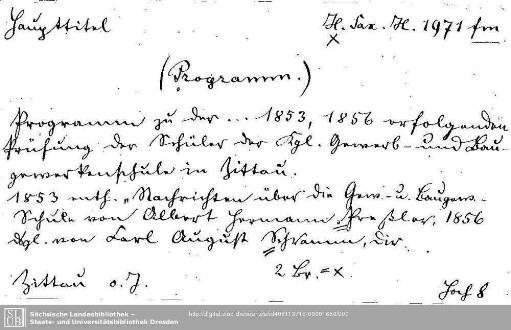 Haupttitel H. Sax. H. 1971 fm
x
(Programm.)
Programm zu der ... 1853, 1856 erfolgenden
Prüfung der Schüler der Kgl. Gewerb- und Bau-
gewerkenschule in Zittau.
1853 enth. „Nachrichten über die Gew- u. Baugew-
Schule von Albert Hermann Preßler, 1856
dgl. von Carl August Schramm, Dir.
2 Br. = x.
Zittau o. J. Hoch 8
Sächsische Landesbibliothek –
Staats- und Universitätsbibliothek Dresden